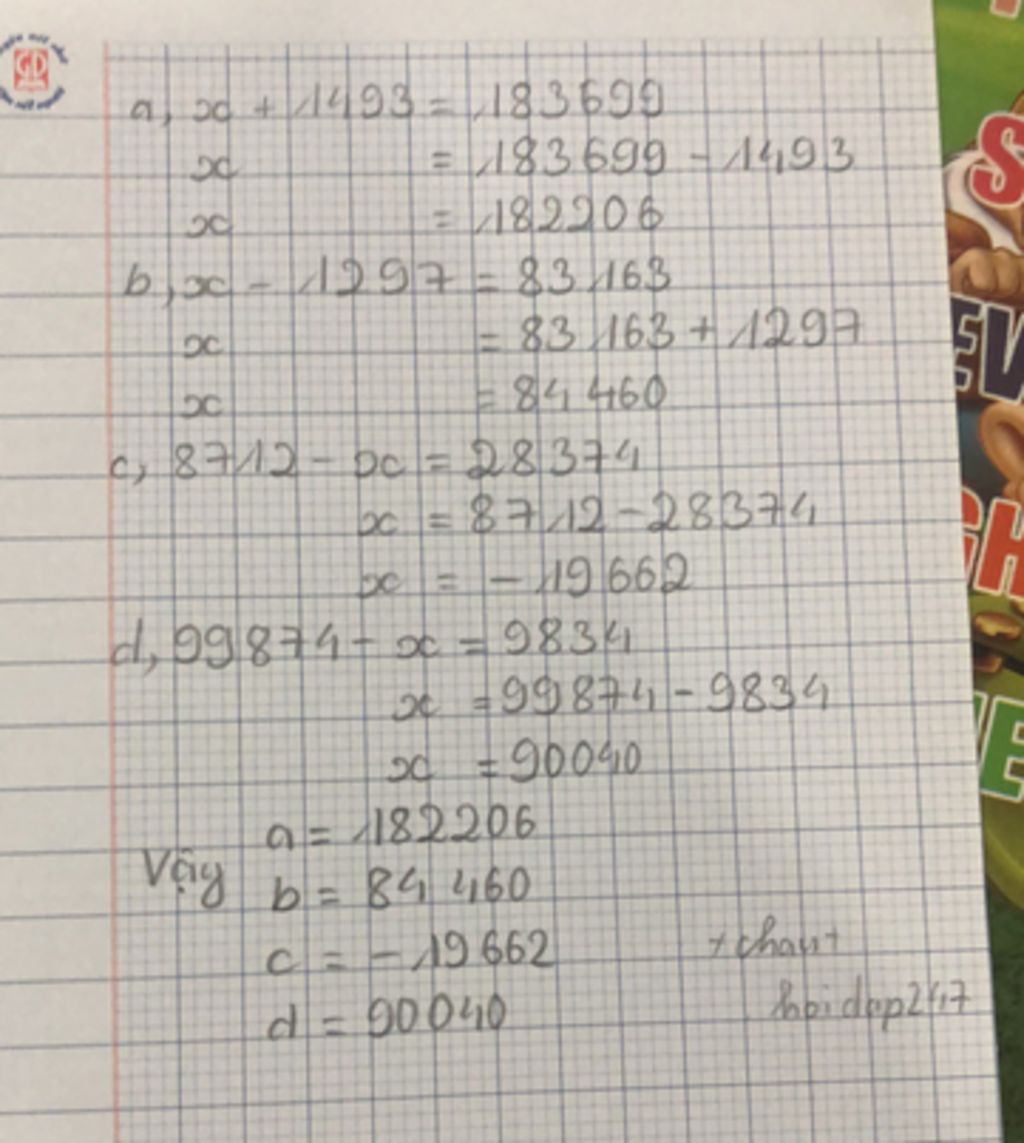 GD
a, x + 1493 = 183699
x = 183699 - 1493
x = 182206
b, x - 1297 = 83163
x = 83163 + 1297
x = 84460
c, 8712 - x = 28374
x = 8712 - 28374
x = - 19662
d, 99874 - x = 9834
x = 99874 - 9834
x = 90040
Vậy a = 182206
b = 84460
c = - 19662
d = 90040
+chau+
hoidap247
S
EW
GH
E